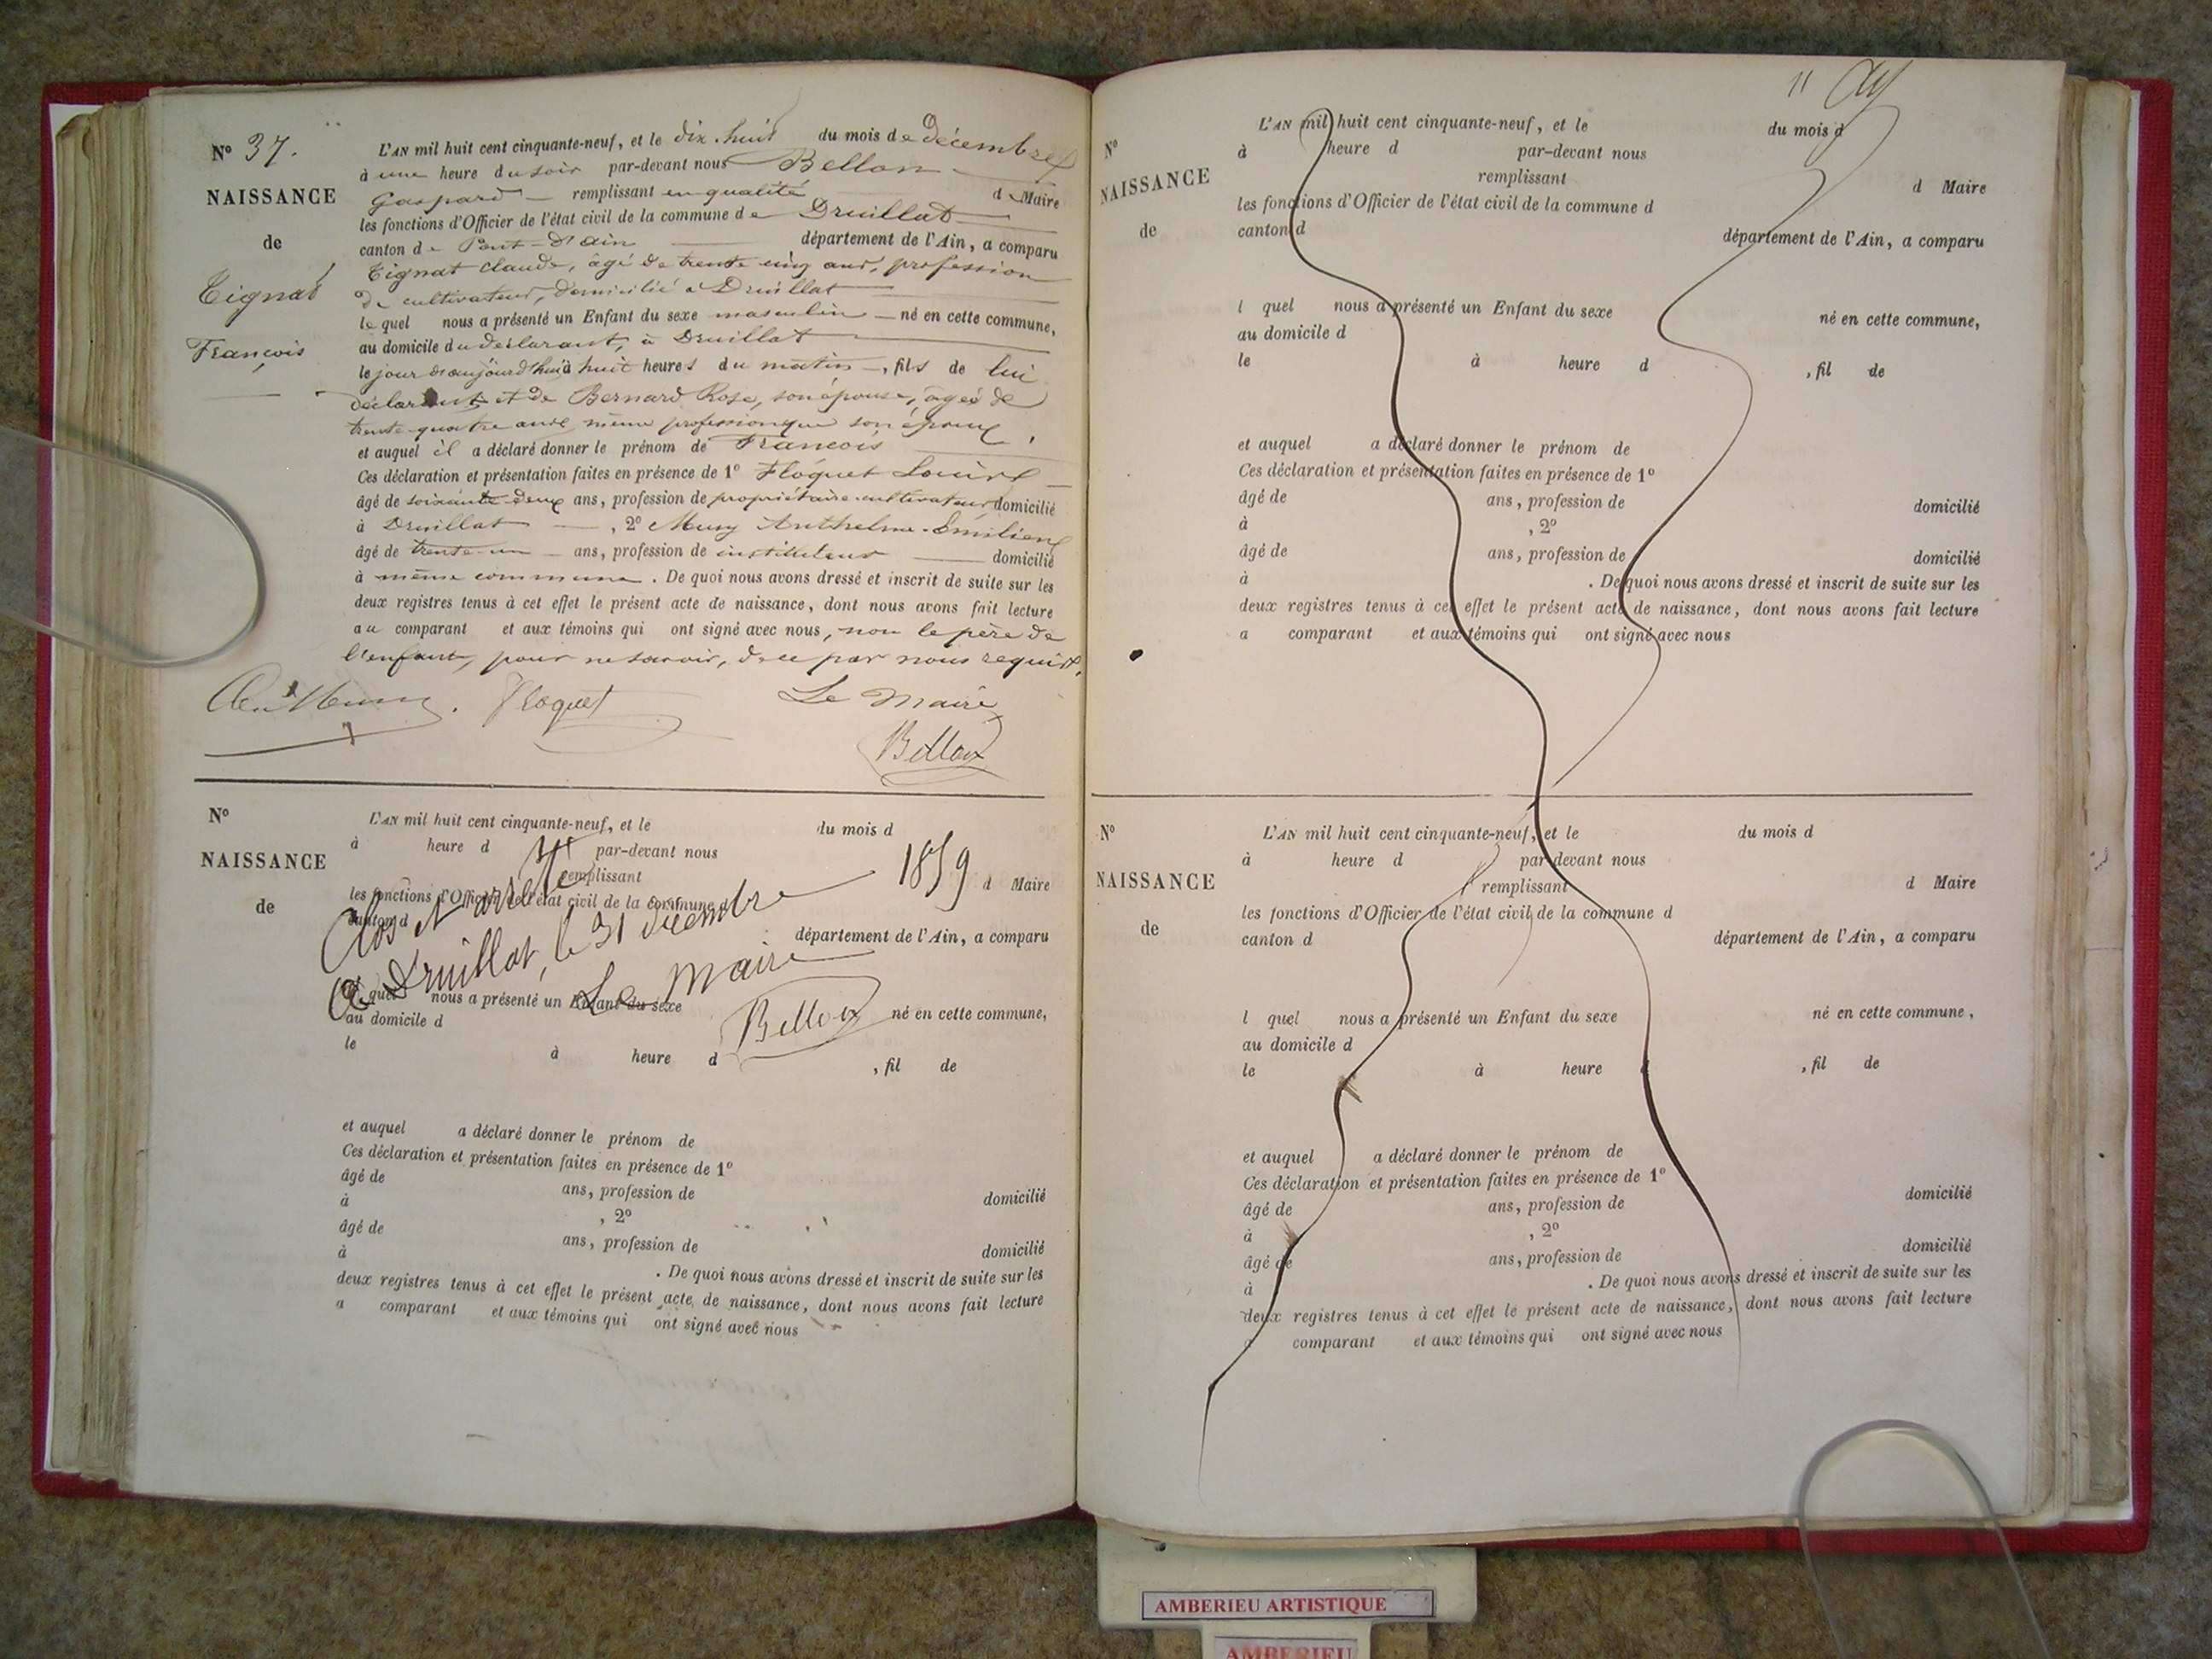 Nº 37.
NAISSANCE
de
Tignat
François
L'AN mil huit cent cinquante-neuf, et le dix-huit du mois de décembre
à une heure du soir par-devant nous Bellon
Gaspard remplissant en qualité d Maire
les fonctions d'Officier de l'état civil de la commune de Druillat
canton de Pont-d'Ain département de l'Ain, a comparu
Tignat Claude, âgé de trente cinq ans, profession
de cultivateur, domicilié à Druillat
lequel nous a présenté un Enfant du sexe masculin né en cette commune,
au domicile du déclarant, à Druillat
le jour d'aujourd'hui à huit heures du matin, fils de lui
déclarant et de Bernard Rose, son épouse, âgée de
trente-quatre ans, même profession que son époux,
et auquel il a déclaré donner le prénom de François
Ces déclaration et présentation faites en présence de 1º Floquet Louis
âgé de soixante-deux ans, profession de propriétaire-cultivateur domicilié
à Druillat , 2º Muny Anthelme-Émilien
âgé de trente-un ans, profession de instituteur domicilié
à même commune. De quoi nous avons dressé et inscrit de suite sur les
deux registres tenus à cet effet le présent acte de naissance, dont nous avons fait lecture
au comparant et aux témoins qui ont signé avec nous, non le père de
l'enfant, pour ne savoir, de ce par nous requis.
Floquet Le Maire
Bellon
Nº
NAISSANCE
de
L'AN mil huit cent cinquante-neuf, et le du mois d
à heure d par-devant nous
remplissant d Maire
les fonctions d'Officier de l'état civil de la commune d
canton d
département de l'Ain, a comparu
Clos et arrêté
à Druillat, le 31 décembre 1859
Le Maire
Bellon
l quel nous a présenté un Enfant du sexe né en cette commune,
au domicile d
le à heure d , fil de
et auquel a déclaré donner le prénom de
Ces déclaration et présentation faites en présence de 1º
âgé de ans, profession de domicilié
à , 2º
âgé de ans, profession de domicilié
à . De quoi nous avons dressé et inscrit de suite sur les
deux registres tenus à cet effet le présent acte de naissance, dont nous avons fait lecture
a comparant et aux témoins qui ont signé avec nous
11
Nº
NAISSANCE
de
L'AN mil huit cent cinquante-neuf, et le du mois d
à heure d par-devant nous
remplissant d Maire
les fonctions d'Officier de l'état civil de la commune d
canton d département de l'Ain, a comparu
l quel nous a présenté un Enfant du sexe né en cette commune,
au domicile d
le à heure d , fil de
et auquel a déclaré donner le prénom de
Ces déclaration et présentation faites en présence de 1º
âgé de ans, profession de domicilié
à , 2º
âgé de ans, profession de domicilié
à . De quoi nous avons dressé et inscrit de suite sur les
deux registres tenus à cet effet le présent acte de naissance, dont nous avons fait lecture
a comparant et aux témoins qui ont signé avec nous
Nº
NAISSANCE
de
L'AN mil huit cent cinquante-neuf, et le du mois d
à heure d par-devant nous
remplissant d Maire
les fonctions d'Officier de l'état civil de la commune d
canton d département de l'Ain, a comparu
l quel nous a présenté un Enfant du sexe né en cette commune,
au domicile d
le à heure d , fil de
et auquel a déclaré donner le prénom de
Ces déclaration et présentation faites en présence de 1º
âgé de ans, profession de domicilié
à , 2º
âgé de ans, profession de domicilié
à . De quoi nous avons dressé et inscrit de suite sur les
deux registres tenus à cet effet le présent acte de naissance, dont nous avons fait lecture
a comparant et aux témoins qui ont signé avec nous
AMBERIEU ARTISTIQUE
AMBERIEU